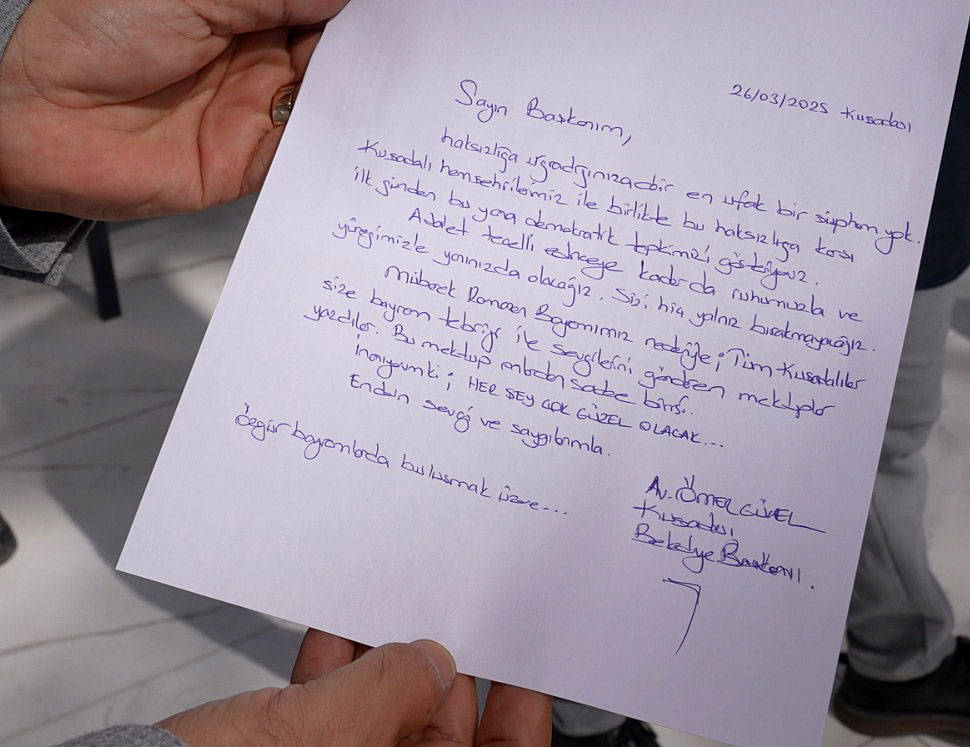 26/03/2025 Kuşadası
Sayın Başkanım,
haksızlığa uğradığınıza dair en ufak bir şüphem yok.
Kuşadalı hemşehrilerimiz ile birlikte bu haksızlığa karşı
ilk günden bu yana demokratik tepkimizi gösteriyoruz.
Adalet tecelli edinceye kadar da ruhumuzla ve
yüreğimizle yanınızda olacağız. Sizi hiç yalnız bırakmayacağız.
Mübarek Ramazan Bayramımız nedeniyle; Tüm Kuşadalılar
size bayram tebriği ile sevgilerini gönderen mektuplar
yazdılar. Bu mektup onlardan sadece birisi.
İnanıyorum ki; HER ŞEY ÇOK GÜZEL OLACAK...
Endan sevgi ve saygılarımla.
Özgür bayramlarda buluşmak üzere...
Av. ÖMER GÜNEL
Kuşadası
Belediye Başkanı.